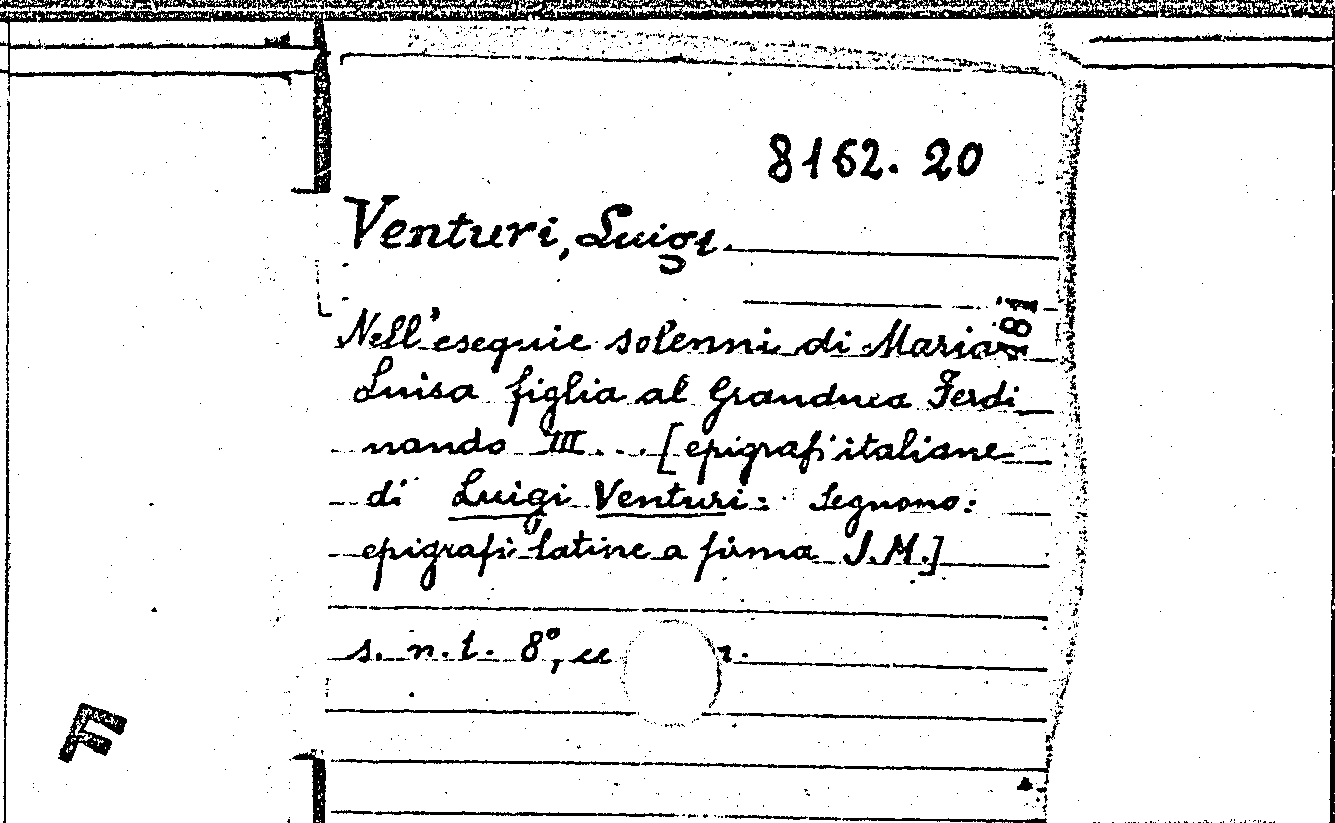 8162. 20
Venturi, Luigi.
181
Nell'esequie solenni di Maria
Luisa figlia al Granduca Ferdi
nando III... [epigrafi italiane
di Luigi Venturi: Seguono:
epigrafi latine a firma J.M.]
s. n. t. 8°, cc
F